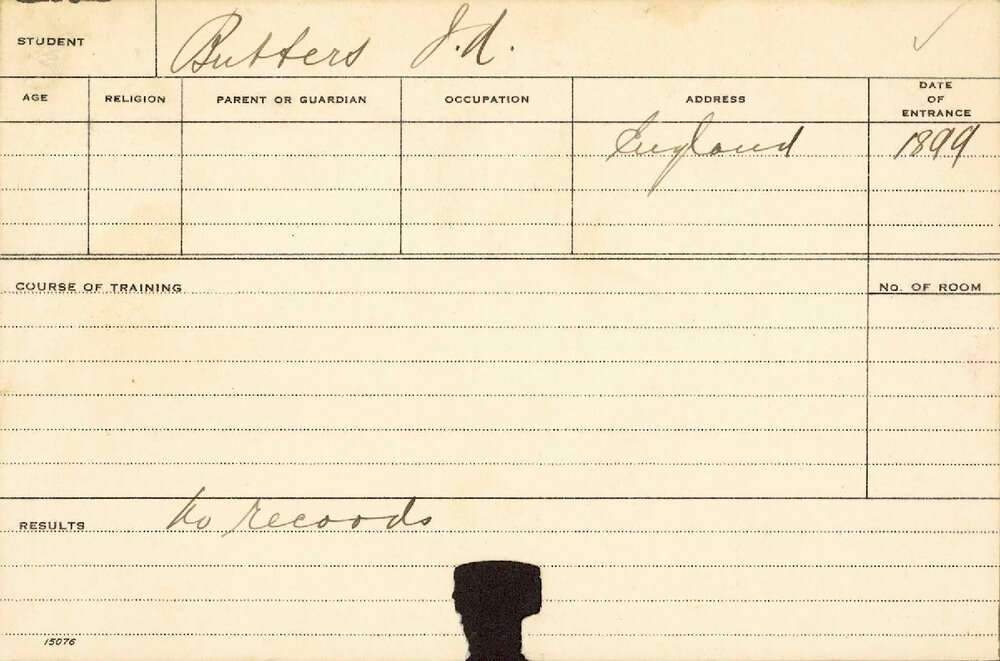 STUDENT Butters J.A. ✓
AGE RELIGION PARENT OR GUARDIAN OCCUPATION ADDRESS DATE OF ENTRANCE
England 1899
COURSE OF TRAINING No. OF ROOM
RESULTS No records
15076